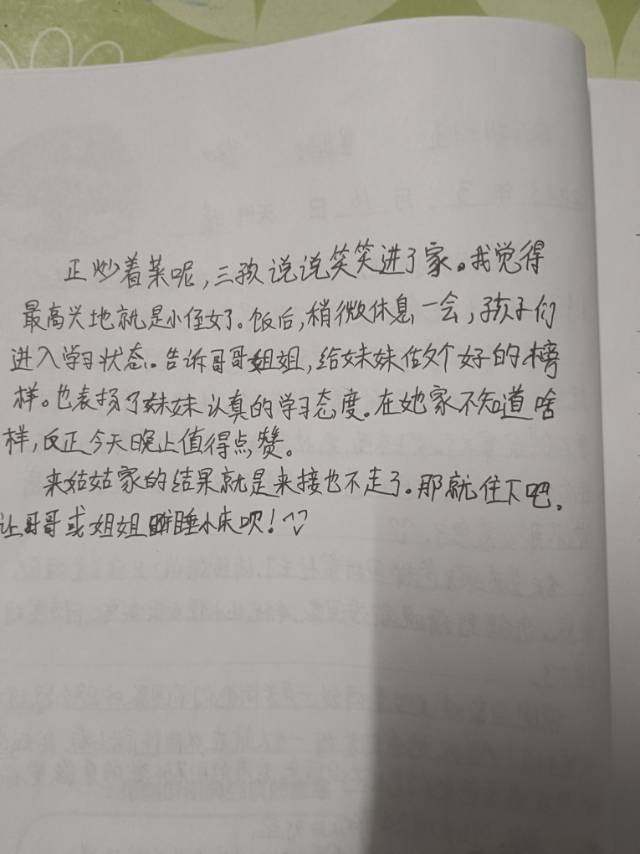 正炒着菜呢,三孩说说笑笑进了家。我觉得
最高兴地就是小侄女了。饭后,稍微休息一会,孩子们
进入学习状态。告诉哥哥姐姐,给妹妹做个好的榜
样。也表扬了妹妹认真的学习态度。在她家不知道啥
样,反正今天晚上值得点赞。
来姑姑家的结果就是来接也不走了。那就住下吧。
让哥哥或姐姐睡小床呗!